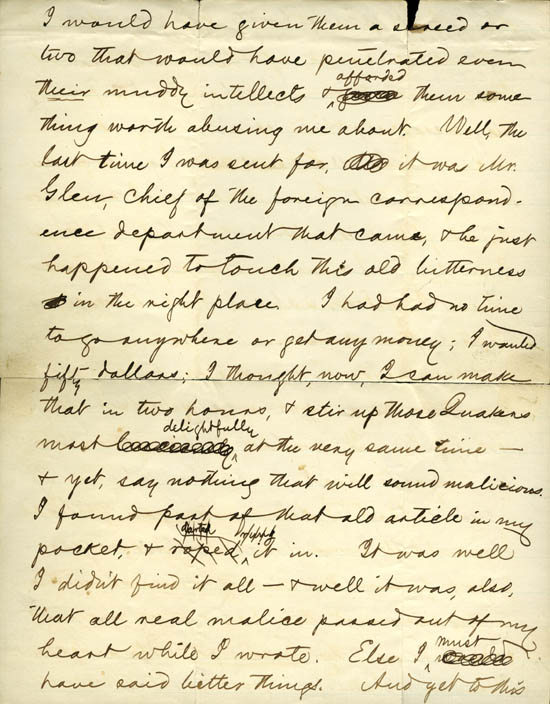 I would have given them a screed or
two that would have penetrated even
their muddy intellects & afforded them some
thing worth abusing me about. Well, the
last time I was sent for, it was Mr.
Glen, chief of the foreign correspond-
ence department that came, & he just
happened to touch this old bitterness
in the right place. I had had no time
to go anywhere or get any money; I wanted
fifty dollars; I thought, now, I can make
that in two hours, & stir up those Quakers
most delightfully at the very same time —
& yet, say nothing that will sound malicious.
I found part of that old article in my
pocket, & it in. It was well
I didn't find it all — & well it was, also,
that all real malice passed out of my
heart while I wrote. Else I must
have said better things. And yet to this